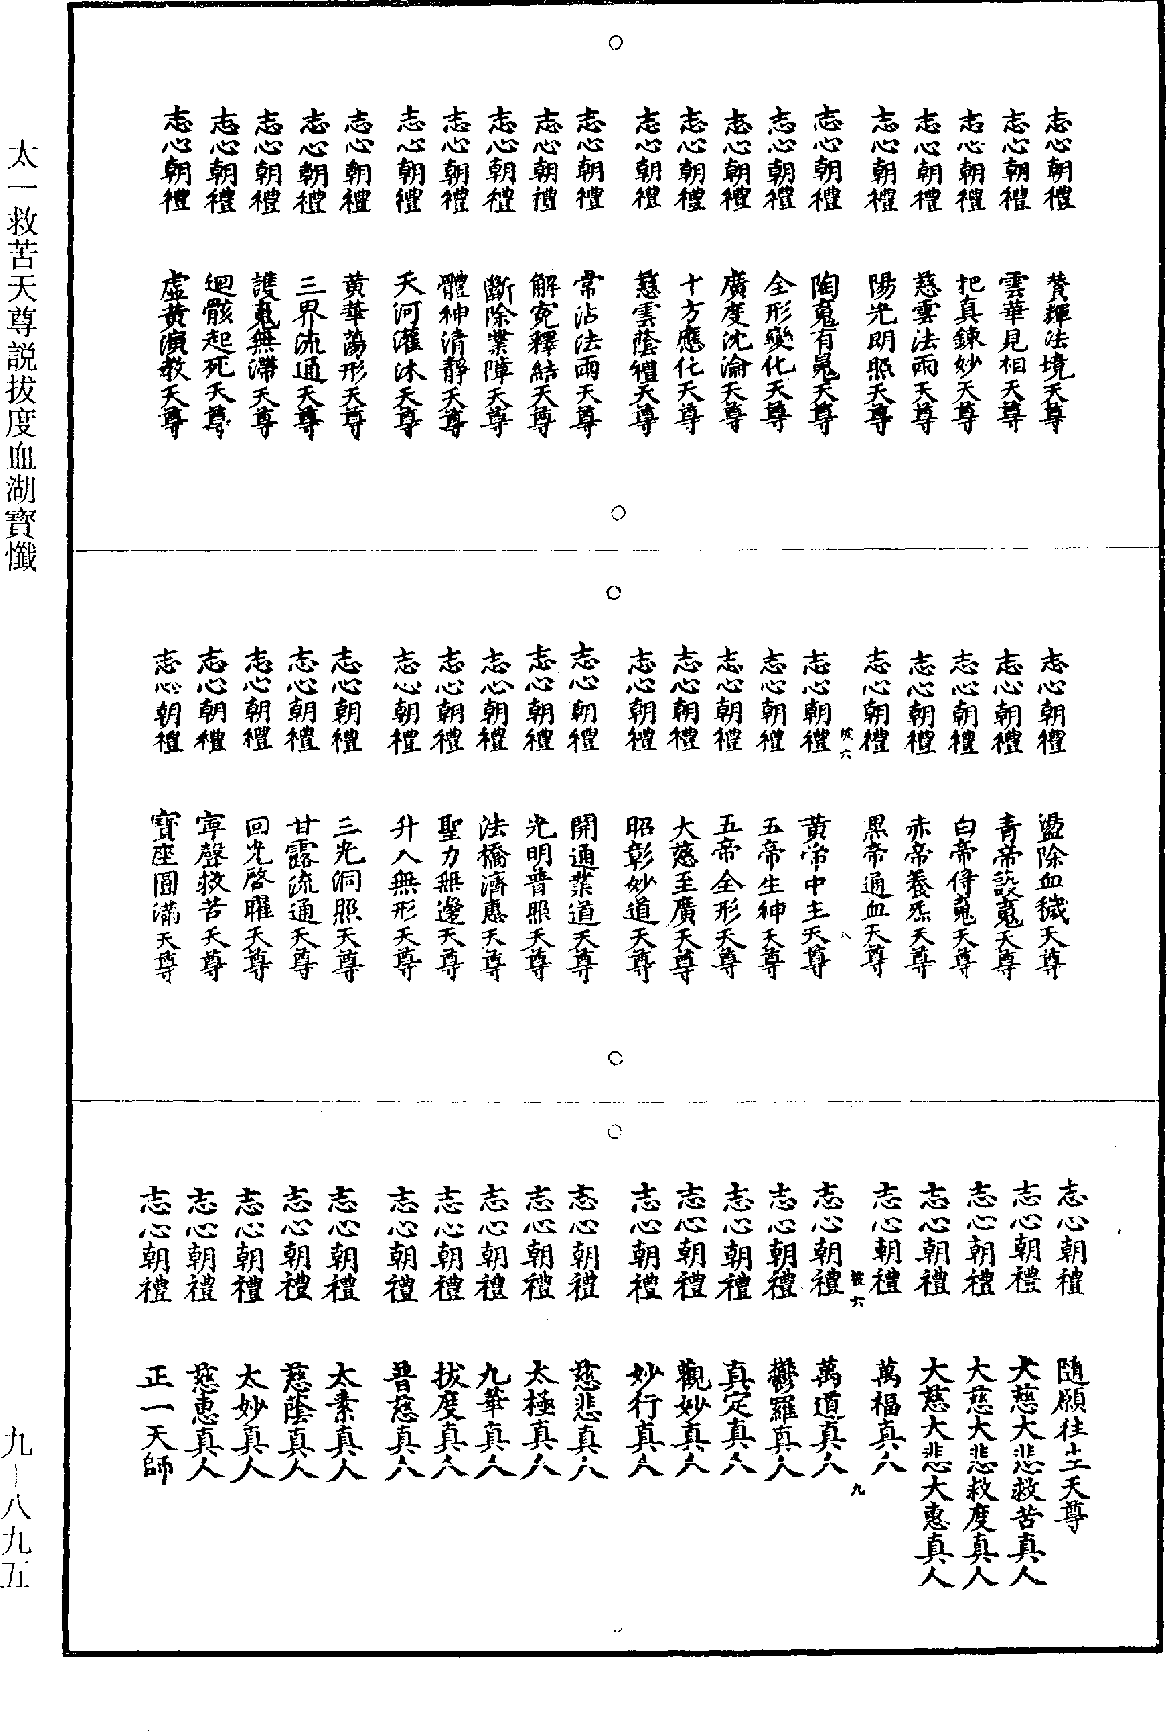 志心朝禮　賛揮法境天尊
志心朝禮　雲華見相天尊
志心朝禮　把真鍊妙天尊
志心朝禮　慈雲法雨天尊
志心朝禮　陽光明照天尊
志心朝禮　陶䰟有晁天尊
志心朝禮　全形變化天尊
志心朝禮　廣度沈淪天尊
志心朝禮　十方應化天尊
志心朝禮　慈雲蔭禮天尊
志心朝禮　常沾法雨天尊
志心朝禮　解寃釋結天尊
志心朝禮　斷除業障天尊
志心朝禮　體神清靜天尊
志心朝禮　天河灌沐天尊
志心朝禮　黄華蕩形天尊
志心朝禮　三界流通天尊
志心朝禮　護䰟無滯天尊
志心朝禮　迴骸起死天尊
志心朝禮　虛黄演教天尊
志心朝禮　盪除血穢天尊
志心朝禮　青帝護䰟天尊
志心朝禮　白帝侍䰟天尊
志心朝禮　赤帝養炁天尊
志心朝禮　黑帝通血天尊
志心朝禮　黄帝中主天尊
志心朝禮　五帝生神天尊
志心朝禮　五帝全形天尊
志心朝禮　大慈至廣天尊
志心朝禮　昭彰妙道天尊
志心朝禮　開通業道天尊
志心朝禮　光明普照天尊
志心朝禮　法橋濟惠天尊
志心朝禮　聖力無邊天尊
志心朝禮　升入無形天尊
志心朝禮　三光洞照天尊
志心朝禮　甘露流通天尊
志心朝禮　回光啓曜天尊
志心朝禮　尋聲救苦天尊
志心朝禮　寶座圓滿天尊
志心朝禮　隨願往生天尊
志心朝禮　大慈大悲救苦真人
志心朝禮　大慈大悲救度真人
志心朝禮　大慈大悲大惠真人
志心朝禮　萬福真人
志心朝禮　萬道真人
志心朝禮　鬱羅真人
志心朝禮　真定真人
志心朝禮　觀妙真人
志心朝禮　妙行真人
志心朝禮　慈悲真人
志心朝禮　太極真人
志心朝禮　九華真人
志心朝禮　拔度真人
志心朝禮　普慈真人
志心朝禮　太素真人
志心朝禮　慈蔭真人
志心朝禮　太妙真人
志心朝禮　慈惠真人
志心朝禮　正一天師
太一救苦天尊説拔度血湖寶懺
九—八九五